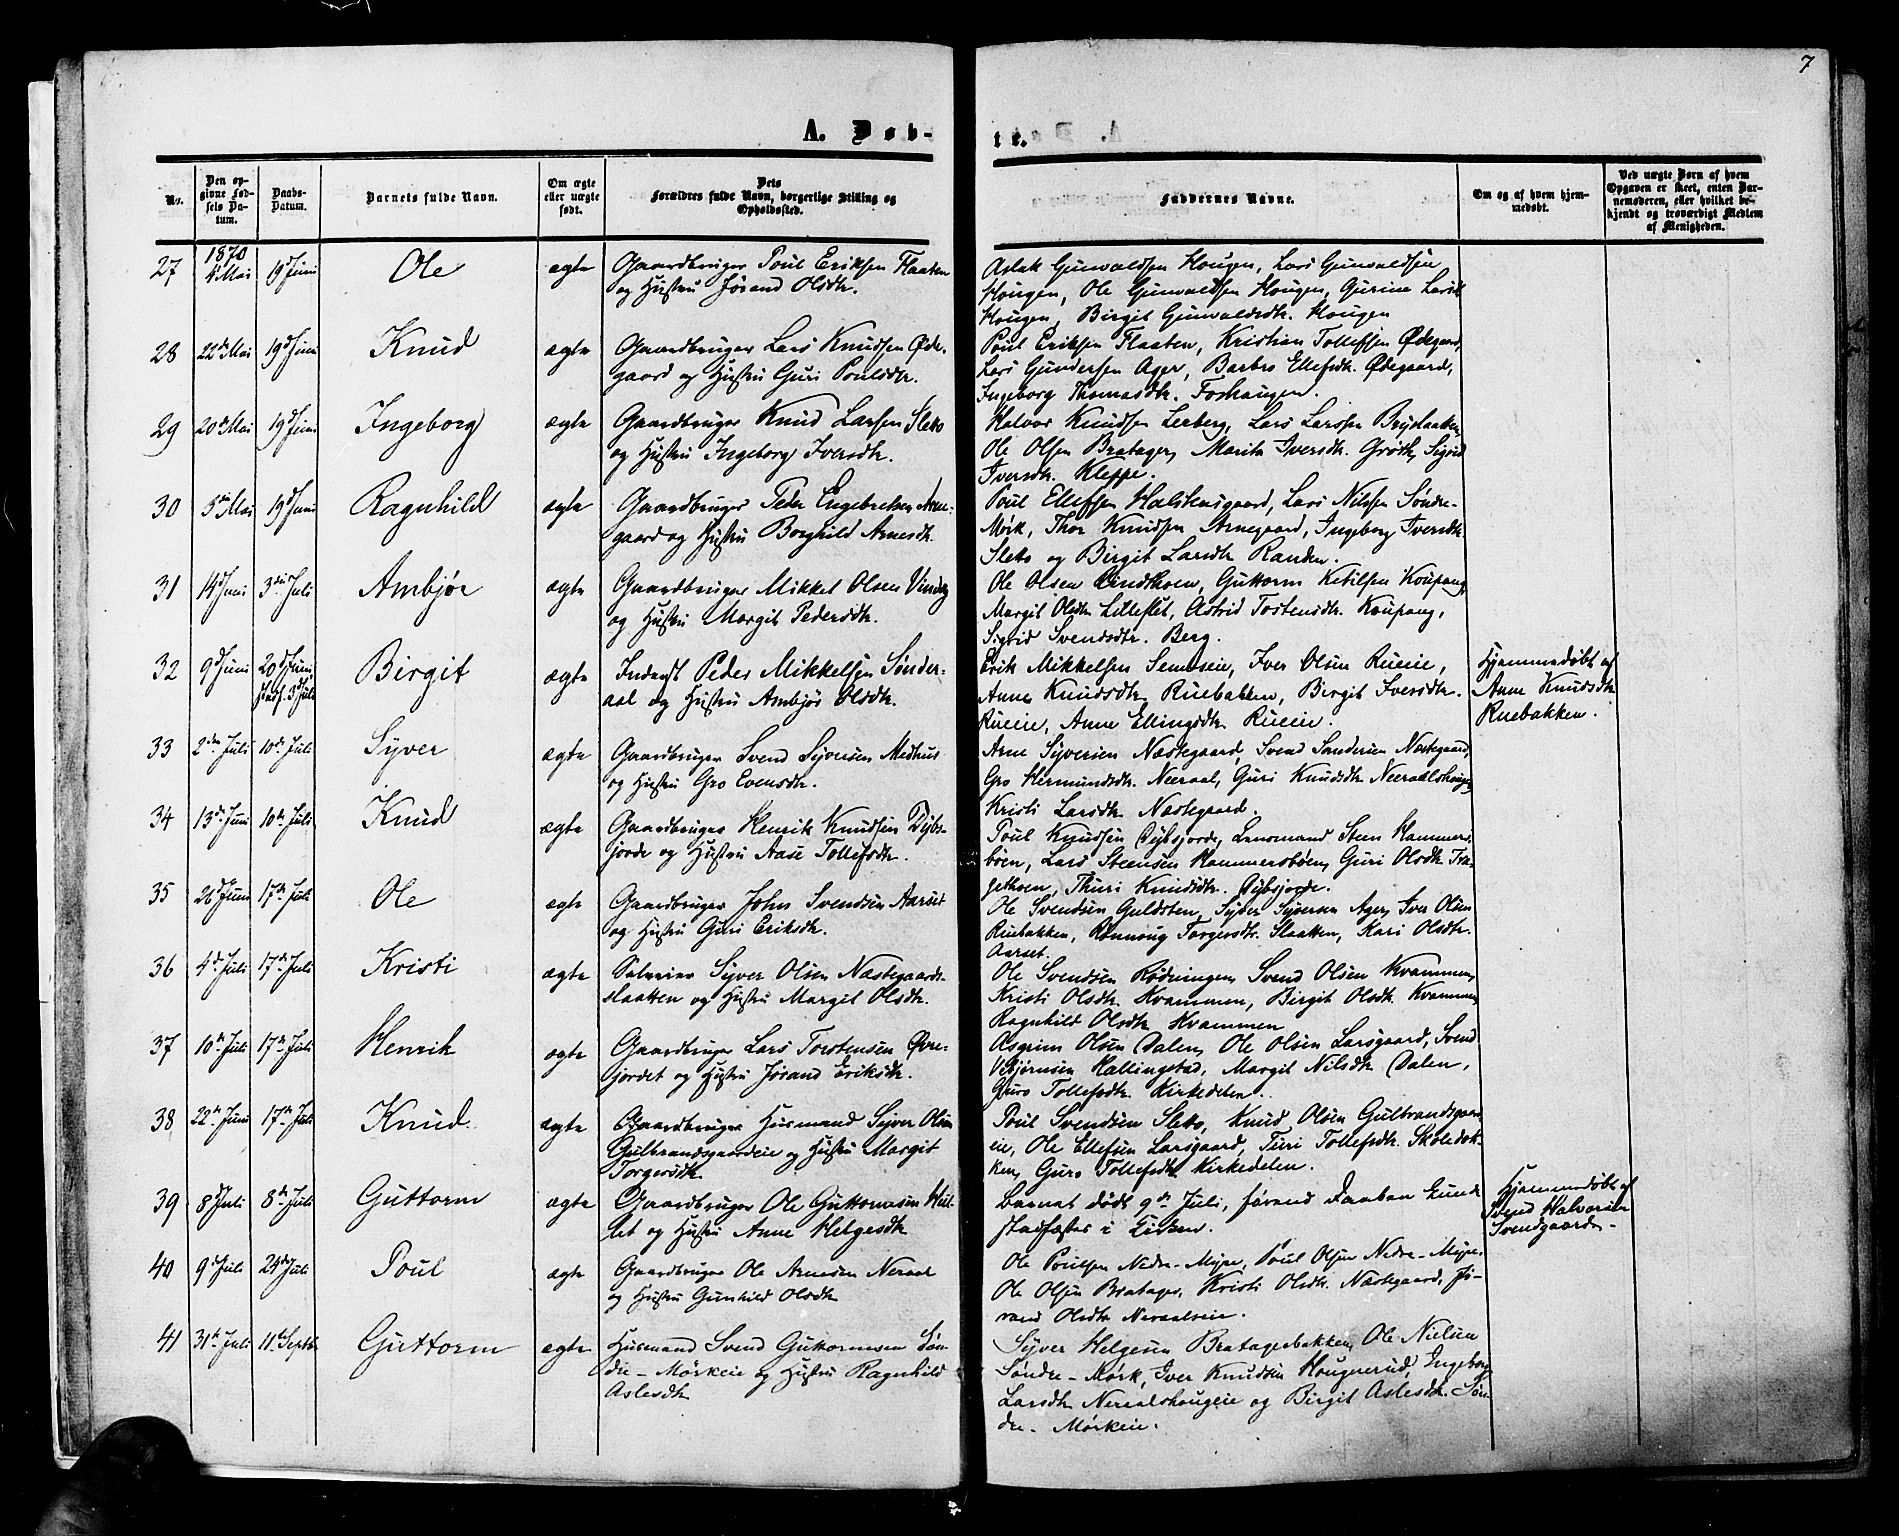 7
A. Døb-
te.
No.
Den op-
givne Fød-
sels Da-
tum.
Daabs-
Datum.
Barnets fulde Navn.
Om ægte
eller uægte
født.
Dets
Forældres fulde Navn, borgerlige Stilling og
Opholdssted.
Faddernes Navne.
Om og af hvem hjem-
medøbt.
Ved uægte Børn af hvem
Opgaven er skeet, enten Bar-
nemoderen, eller hvilket be-
kjendt og troværdigt Medlem
af Menigheden.
1870
27 4 Mai 19d Juni Ole ægte Gaardbruger Poul Eriksen Flaaten
og Hustru Jørand Olsdtr.
Aslak Gunvaldsen Hougen, Lars Gunvaldsen
Hougen, Ole Gunvaldsen Hougen, Gurine Larsdt
Hougen, Birgit Gunvaldsdtr. Hougen
28 22de Mai 19d Juni Knud ægte Gaardbruger Lars Knudsen Øde-
gaard og Hustru Guri Poulsdtr.
Poul Eriksen Flaaten, Kristian Tollefsen Ødegaard,
Lars Gundersen Ager, Barbro Ellefsdtr. Ødegaard,
Ingeborg Thomasdtr. Foshaugen.
29 20de Mai 19d Juni Ingeborg ægte Gaardbruger Knud Larsen Sleto
og Hustru Ingeborg Iversdtr.
Halvor Knudsen Lerberg, Lars Larssen
Ole Olsen Bratager, Marita Iversdtr. Grøth, Sigrid
Iversdtr. Kleppe.
30 5te Mai 19d Juni Ragnhild ægte Gaardbruger Peder Engebretsen Arne-
gaard og Hustru Borghild Arnesdtr.
Poul Ellefsen Halstensgaard, Lars Nilsen Søndre-
Mørk, Thor Knudsen Arnegaard, Ingeborg Iversdtr.
Sleto og Birgit Larsdtr Randen.
31 14d Juni 3die Juli Ambjør ægte Gaardbruger Mikkel Olsen Vindeg
og Hustru Margit Pedersdtr.
Ole Olsen Lindthoen, Guttorm Ketilsen Koupang,
Margit Olsdtr Lilleslet, Astrid Tostensdtr. Koupang,
Sigrid Svendsdtr. Berg.
32 9d Juni 20d Juni
stadf. 3d Juli Birgit ægte Inderst Peder Mikkelsen Sønder-
aal og Hustru Ambjør Olsdtr.
Erik Mikkelsen Semseie, Iver Olsen Rueeie,
Anne Knudsdtr. Ruebakken, Birgit Iversdtr.
Rueeie, Anne Ellingsdtr. Rueeie.
Hjemmedøbt af
Anne Knudsdtr
Ruebakken.
33 2den Juli 10de Juli Syver ægte Gaardbruger Svend Syversen Medhus
og Hustru Gro Evensdtr.
Arne Syversen Næstegaard, Svend Sandersen Næstegaard,
Gro Hermundsdtr. Neeraal, Guri Knudsdtr Neeraalshougen,
Kristi Larsdtr. Næstegaard.
34 13de Juni 10de Juli Knud ægte Gaardbruger Henrik Knudsen Dybs-
jorde og Hustru Aase Tollefsdtr.
Poul Knudsen Dybsjorde, Lensmand Steen Hammers-
bøen, Lars Steensen Hammersbøen, Guri Olsdtr. Tra-
gethoen, Thuri Knudsdtr. Dybsjorde.
35 26d Juni 17de Juli Ole ægte Gaardbruger John Svendsen Aarset
og Hustru Guri Eriksdtr.
Ole Svendsen Guldsten, Syver Syversen Ager, Iver Olsen
Ruebakken, Rønnoug Torgersdtr. Slaatten, Kari Olsdtr.
Aarset.
36 4d Juli 17de Juli Kristi ægte Syver Olsen Næstegaards-
slaatten og Hustru Margit Olsdtr.
Ole Svendsen Rødningen, Svend Olsen Kvammen,
Kristi Olsdtr. Kvammen, Birgit Olsdtr Kvammen,
Ragnhild Olsdtr Kvammen
37 10de Juli 17de Juli Henrik ægte Gaardbruger Lars Torstensen Øvre-
jordet og Hustru Jørand Eriksdtr.
Asgrim Olsen Dalen, Ole Olsen Larsgaard, Svend
Vebjørnsen Hallingstad, Margit Nilsdtr Dalen,
Guro Tollefsdtr. Kirkedelen.
38 22de Juni 17de Juli Knud ægte Gaardbruger Husmand Syver Olsen
Gulbrandsgaardeie og Hustru Margit
Torgersdtr.
Poul Svendsen Sleto, Knud Olsen Gulbrandsgaard-
eie, Ole Ellefsen Larsgaard, Turi Tollefsdtr. Skoledok-
ken, Guro Tollefsdtr Kirkedelen.
39 8d Juli 8de Juli Guttorm ægte Gaardbruger Ole Guttormsen Hel-
let og Hustru Anne Helgesdtr.
Barnet døde 9de Juli, førend Daaben kunde
stadfæstes i Kirken.
Hjemmedøbt af
Svend Halvorsen
Svendgaarden
40 9d Juli 24d Juli Poul ægte Gaardbruger Ole Arnesen Neraal
og Hustru Gunhild Olsdtr.
Ole Poulsen Nedre-Myre, Poul Olsen Nedre-Myre,
Ole Olsen Bratager, Kristi Olsdtr. Næstegaard, Jø-
rand Olsdtr Neraalseie.
41 31te Juli 11te Septb. Guttorm ægte Husmand Svend Guttormsen Søn-
dre-Mørkeie og Hustru Ragnhild
Aslesdtr.
Syver Helgesen Bratagerbakken, Ole Nielsen
Søndre-Mørk, Iver Knudsen Hougerud, Ingeborg
Larsdtr Neraalshougeie og Birgit Aslesdtr. Søn-
dre-Mørkeie.